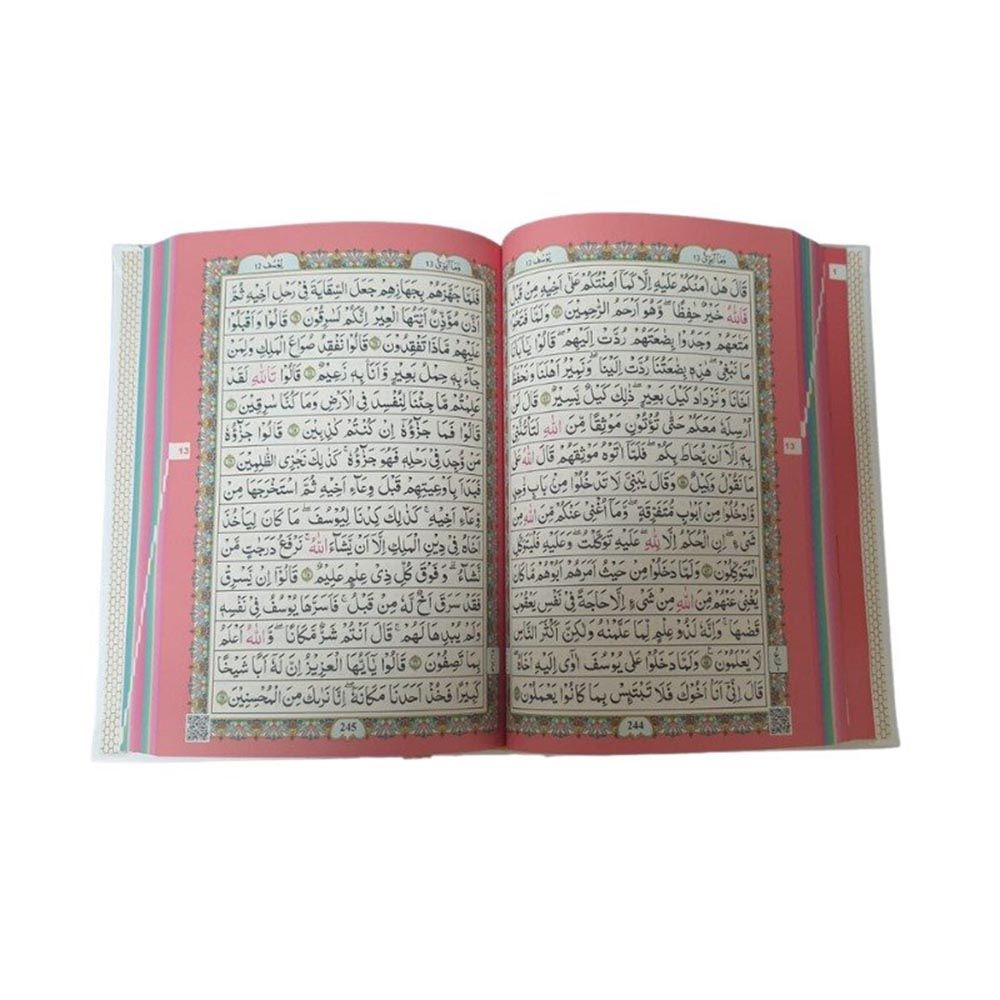 وَمَآ اُبَرِّئُ 13
يُوْسُف 12
قَالَ هَلْ اٰمَنُكُمْ عَلَيْهِ اِلَّا كَمَآ اَمِنْتُكُمْ عَلٰٓى اَخِيْهِ مِنْ قَبْلُ
فَاللّٰهُ خَيْرٌ حٰفِظًا وَّهُوَ اَرْحَمُ الرّٰحِمِيْنَ وَلَمَّا فَتَحُوْا
مَتَاعَهُمْ وَجَدُوْا بِضَاعَتَهُمْ رُدَّتْ اِلَيْهِمْ قَالُوْا يٰٓاَبَانَا
مَا نَبْغِيْ هٰذِهٖ بِضَاعَتُنَا رُدَّتْ اِلَيْنَا وَنَمِيْرُ اَهْلَنَا وَنَحْفَظُ
اَخَانَا وَنَزْدَادُ كَيْلَ بَعِيْرٍ ذٰلِكَ كَيْلٌ يَّسِيْرٌ قَالَ لَنْ
اُرْسِلَهٗ مَعَكُمْ حَتّٰى تُؤْتُوْنِ مَوْثِقًا مِّنَ اللّٰهِ لَتَاْتُنَّنِيْ
بِهٖٓ اِلَّآ اَنْ يُّحَاطَ بِكُمْ فَلَمَّآ اٰتَوْهُ مَوْثِقَهُمْ قَالَ اللّٰهُ عَلٰى
مَا نَقُوْلُ وَكِيْلٌ وَقَالَ يٰبَنِيَّ لَا تَدْخُلُوْا مِنْ بَابٍ وَّاحِدٍ
وَّادْخُلُوْا مِنْ اَبْوَابٍ مُّتَفَرِّقَةٍ وَمَآ اُغْنِيْ عَنْكُمْ مِّنَ اللّٰهِ مِنْ
شَيْءٍ اِنِ الْحُكْمُ اِلَّا لِلّٰهِ عَلَيْهِ تَوَكَّلْتُ وَعَلَيْهِ فَلْيَتَوَكَّلِ
الْمُتَوَكِّلُوْنَ وَلَمَّا دَخَلُوْا مِنْ حَيْثُ اَمَرَهُمْ اَبُوْهُمْ مَا كَانَ
يُغْنِيْ عَنْهُمْ مِّنَ اللّٰهِ مِنْ شَيْءٍ اِلَّا حَاجَةً فِيْ نَفْسِ يَعْقُوْبَ
قَضٰىهَا وَاِنَّهٗ لَذُوْ عِلْمٍ لِّمَا عَلَّمْنٰهُ وَلٰكِنَّ اَكْثَرَ النَّاسِ
لَا يَعْلَمُوْنَ وَلَمَّا دَخَلُوْا عَلٰى يُوْسُفَ اٰوٰٓى اِلَيْهِ اَخَاهُ
قَالَ اِنِّيْٓ اَنَا اَخُوْكَ فَلَا تَبْتَىِٕسْ بِمَا كَانُوْا يَعْمَلُوْنَ
244
13
1
وَمَآ اُبَرِّئُ 13
يُوْسُف 12
فَلَمَّا جَهَّزَهُمْ بِجَهَازِهِمْ جَعَلَ السِّقَايَةَ فِيْ رَحْلِ اَخِيْهِ ثُمَّ
اَذَّنَ مُؤَذِّنٌ اَيَّتُهَا الْعِيْرُ اِنَّكُمْ لَسٰرِقُوْنَ قَالُوْا وَاَقْبَلُوْا
عَلَيْهِمْ مَّاذَا تَفْقِدُوْنَ قَالُوْا نَفْقِدُ صُوَاعَ الْمَلِكِ وَلِمَنْ
جَآءَ بِهٖ حِمْلُ بَعِيْرٍ وَّاَنَا۠ بِهٖ زَعِيْمٌ قَالُوْا تَاللّٰهِ لَقَدْ
عَلِمْتُمْ مَّا جِئْنَا لِنُفْسِدَ فِي الْاَرْضِ وَمَا كُنَّا سٰرِقِيْنَ
قَالُوْا فَمَا جَزَآؤُهٗٓ اِنْ كُنْتُمْ كٰذِبِيْنَ قَالُوْا جَزَآؤُهٗ
مَنْ وُّجِدَ فِيْ رَحْلِهٖ فَهُوَ جَزَآؤُهٗ كَذٰلِكَ نَجْزِي الظّٰلِمِيْنَ
فَبَدَاَ بِاَوْعِيَتِهِمْ قَبْلَ وِعَآءِ اَخِيْهِ ثُمَّ اسْتَخْرَجَهَا مِنْ
وِّعَآءِ اَخِيْهِ كَذٰلِكَ كِدْنَا لِيُوْسُفَ مَا كَانَ لِيَاْخُذَ
اَخَاهُ فِيْ دِيْنِ الْمَلِكِ اِلَّآ اَنْ يَّشَآءَ اللّٰهُ نَرْفَعُ دَرَجٰتٍ مَّنْ
نَّشَآءُ وَفَوْقَ كُلِّ ذِيْ عِلْمٍ عَلِيْمٌ قَالُوْٓا اِنْ يَّسْرِقْ
فَقَدْ سَرَقَ اَخٌ لَّهٗ مِنْ قَبْلُ فَاَسَرَّهَا يُوْسُفُ فِيْ نَفْسِهٖ
وَلَمْ يُبْدِهَا لَهُمْ قَالَ اَنْتُمْ شَرٌّ مَّكَانًا وَاللّٰهُ اَعْلَمُ
بِمَا تَصِفُوْنَ قَالُوْا يٰٓاَيُّهَا الْعَزِيْزُ اِنَّ لَهٗٓ اَبًا شَيْخًا
كَبِيْرًا فَخُذْ اَحَدَنَا مَكَانَهٗ اِنَّا نَرٰىكَ مِنَ الْمُحْسِنِيْنَ
245
13